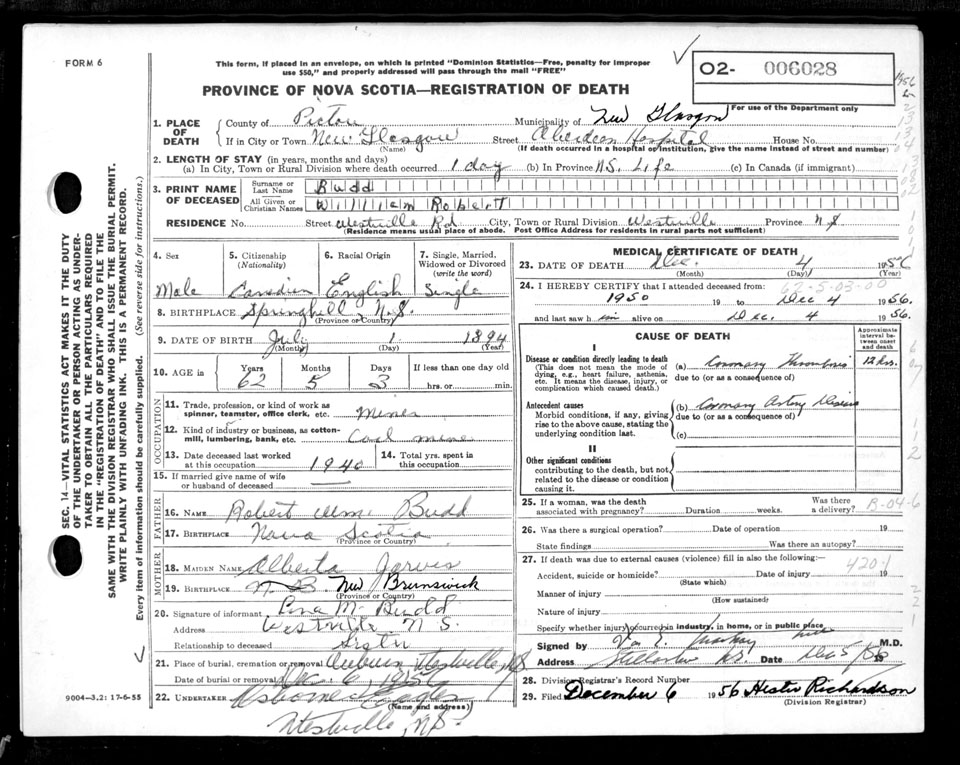 FORM 6
This form, if placed in an envelope, on which is printed "Dominion Statistics—Free, penalty for improper
use $50," and properly addressed will pass through the mail "FREE"
O2- 006028
PROVINCE OF NOVA SCOTIA—REGISTRATION OF DEATH
For use of the Department only
1. PLACE OF DEATH
County of Pictou Municipality of New Glasgow
If in City or Town New Glasgow Street Aberdeen Hospital House No.
(Name) (If death occurred in a hospital or institution, give the name instead of street and number)
2. LENGTH OF STAY (in years, months and days)
(a) In City, Town or Rural Division where death occurred 1 day (b) In Province N.S. Life (c) In Canada (if immigrant)
3. PRINT NAME OF DECEASED
Surname or Last Name Budd
All Given or Christian Names William Robert
RESIDENCE No. Street Westville Rd. City, Town or Rural Division Westville Province N.S
(Residence means usual place of abode. Post Office Address for residents in rural parts not sufficient)
4. Sex 5. Citizenship (Nationality) 6. Racial Origin 7. Single, Married, Widowed or Divorced (write the word)
Male Canadian English Single
8. BIRTHPLACE Springhill, N.S.
(Province or Country)
9. DATE OF BIRTH July 1 1894
(Month) (Day) (Year)
10. AGE in Years Months Days If less than one day old
62 5 3 hrs. or min.
OCCUPATION
11. Trade, profession, or kind of work as
spinner, teamster, office clerk, etc. Miner
12. Kind of industry or business, as cotton-
mill, lumbering, bank, etc. Coal mine
13. Date deceased last worked
at this occupation 1940
14. Total yrs. spent in
this occupation
15. If married give name of wife
or husband of deceased
FATHER
16. NAME Robert Wm. Budd
17. BIRTHPLACE Nova Scotia
(Province or Country)
MOTHER
18. MAIDEN NAME Alberta Jarvis
19. BIRTHPLACE N.B. New Brunswick
(Province or Country)
20. Signature of informant M. Budd
Address Westville N.S.
Relationship to deceased Sister
21. Place of burial, cremation or removal Auburn Westville, NS
Date of burial or removal Dec. 6, 1956
22. UNDERTAKER Osborne
(Name and address)
Westville, N.S.
9004-3.2: 17-6-55
MEDICAL CERTIFICATE OF DEATH
23. DATE OF DEATH Dec. 4 1956
(Month) (Day) (Year)
24. I HEREBY CERTIFY that I attended deceased from:
62-5-03-00
1950 19 to Dec 4 1956.
and last saw him alive on Dec. 4 1956.
CAUSE OF DEATH
Approximate interval between onset and death
I
Disease or condition directly leading to death
(This does not mean the mode of
dying, e.g., heart failure, asthenia,
etc. It means the disease, injury, or
complication which caused death.)
(a) Coronary Thrombosis 12 hrs.
due to (or as a consequence of)
Antecedent causes
Morbid conditions, if any, giving
rise to the above cause, stating the
underlying condition last.
(b) Coronary Artery Disease
due to (or as a consequence of)
(c)
II
Other significant conditions
contributing to the death, but not
related to the disease or condition
causing it.
25. If a woman, was the death
associated with pregnancy? Duration weeks. Was there
a delivery?
B-04-6
26. Was there a surgical operation? Date of operation 19
State findings Was there an autopsy?
27. If death was due to external causes (violence) fill in also the following:
Accident, suicide or homicide? Date of injury 19
420-1
(State which)
Manner of injury
(How sustained)
Nature of injury
Specify whether injury occurred in industry, in home, or in public place
Signed by M.D.
Address Stellarton N.S. Date Dec 5/56 19
28. Division Registrar's Record Number
29. Filed December 6 1956 Hester Richardson
(Division Registrar)
SEC. 14—VITAL STATISTICS ACT MAKES IT THE DUTY
OF THE UNDERTAKER OR PERSON ACTING AS UNDER-
TAKER TO OBTAIN ALL THE PARTICULARS REQUIRED
IN THE "REGISTRATION OF DEATH" AND TO FILE THE
SAME WITH THE DIVISION REGISTRAR WHO SHALL ISSUE THE BURIAL PERMIT.
WRITE PLAINLY WITH UNFADING INK. THIS IS A PERMANENT RECORD.
Every item of information should be carefully supplied. (See reverse side for instructions.)